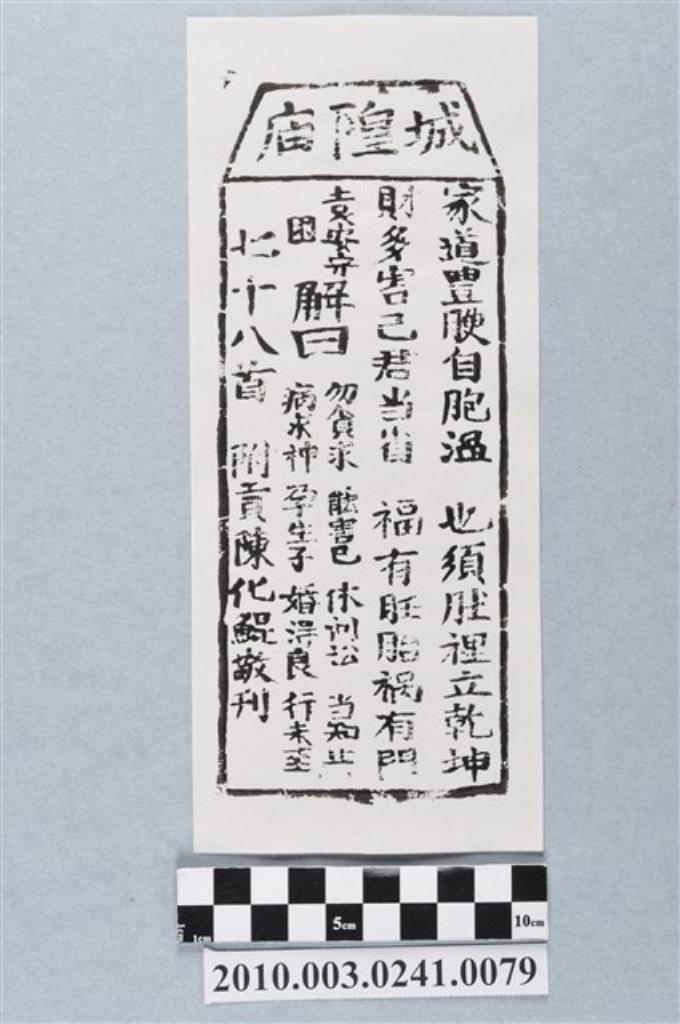 城隍庙
家道豐腴自胞温 也須肚裡立乾坤
財多害己君当省 福有胚胎祸有門
袁安守困
解曰
勿貪求 能害己 休訟 当知止
病求神 孕生子 婚淂良 行未至
七十八首 附貢陳化鯤敬刊
1cm 5cm 10cm
2010.003.0241.0079